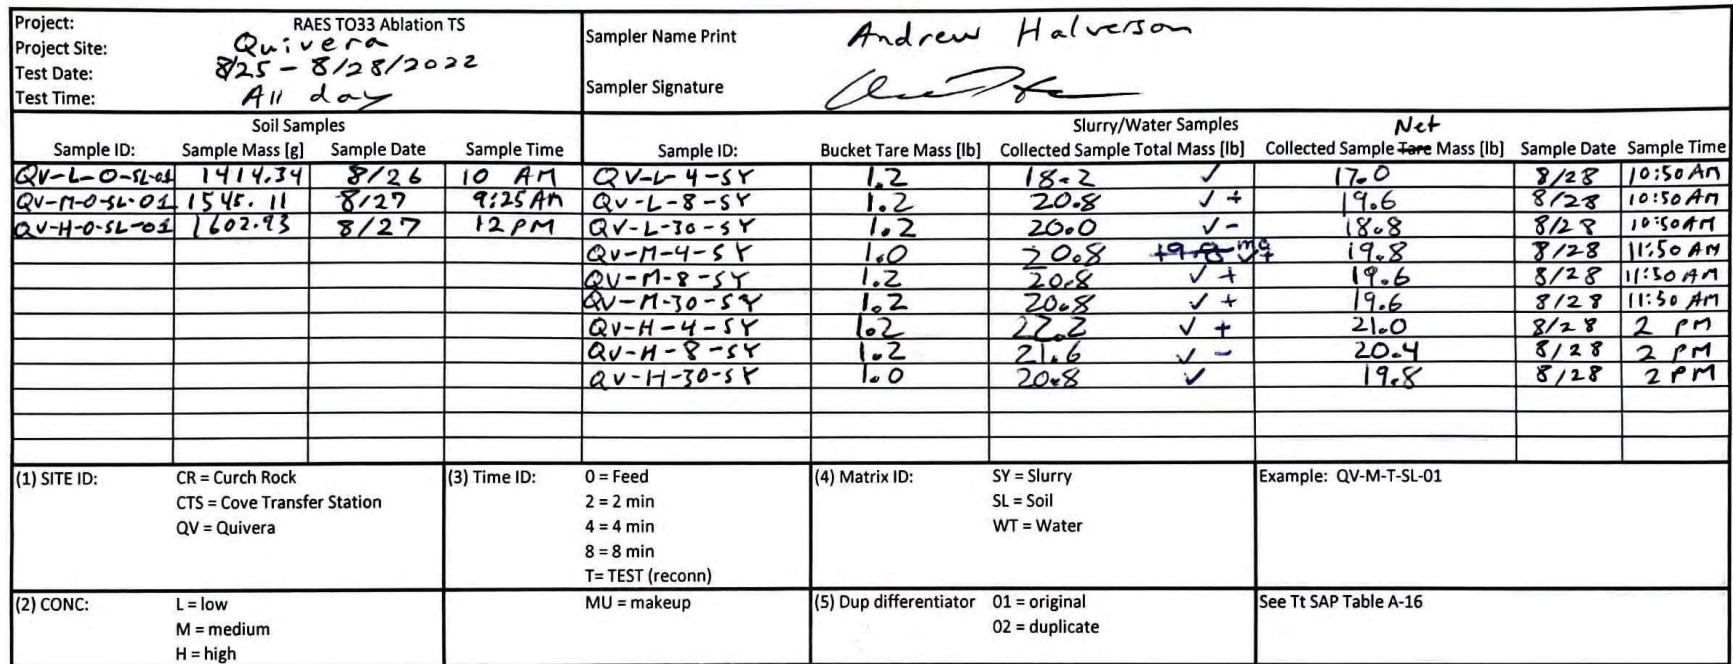 Project: RAES TO33 Ablation TS
Project Site: Quivera
Test Date: 8/25 - 8/28/2022
Test Time: All day
Sampler Name Print Andrew Halverson
Sampler Signature
Soil Samples
Sample ID: Sample Mass [g] Sample Date Sample Time
QV-L-0-SL-01 1414.34 8/26 10 AM
QV-M-0-SL-01 1545.11 8/27 9:25 AM
QV-H-0-SL-01 1602.93 8/27 12 PM
Slurry/Water Samples Net
Sample ID: Bucket Tare Mass [lb] Collected Sample Total Mass [lb] Collected Sample Tare Mass [lb] Sample Date Sample Time
QV-L-4-SY 1.2 18.2 ✓ 17.0 8/28 10:50 AM
QV-L-8-SY 1.2 20.8 ✓ + 19.6 8/28 10:50 AM
QV-L-30-SY 1.2 20.0 ✓ - 18.8 8/28 10:50 AM
QV-M-4-SY 1.0 20.8 ✓+ 19.8 8/28 11:50 AM
QV-M-8-SY 1.2 20.8 ✓ + 19.6 8/28 11:50 AM
QV-M-30-SY 1.2 20.8 ✓ + 19.6 8/28 11:50 AM
QV-H-4-SY 1.2 22.2 ✓ + 21.0 8/28 2 PM
QV-H-8-SY 1.2 21.6 ✓ - 20.4 8/28 2 PM
QV-H-30-SY 1.0 20.8 ✓ 19.8 8/28 2 PM
(1) SITE ID: CR = Curch Rock
CTS = Cove Transfer Station
QV = Quivera
(3) Time ID: 0 = Feed
2 = 2 min
4 = 4 min
8 = 8 min
T= TEST (reconn)
MU = makeup
(4) Matrix ID: SY = Slurry
SL = Soil
WT = Water
Example: QV-M-T-SL-01
(2) CONC: L = low
M = medium
H = high
(5) Dup differentiator 01 = original
02 = duplicate
See Tt SAP Table A-16